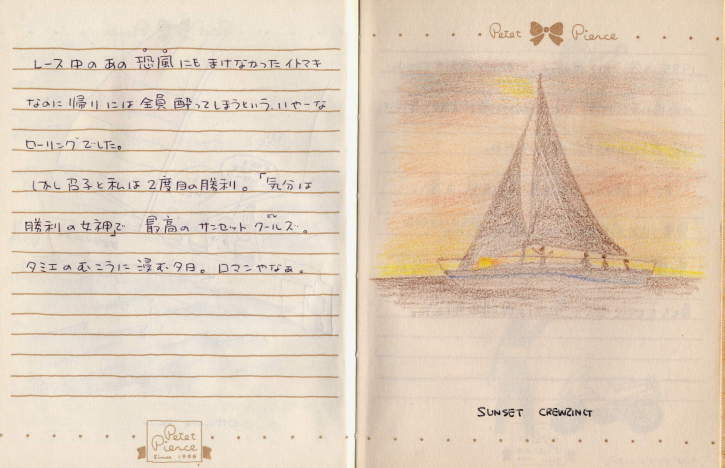 レース中のあの恐風にもまけなかったイトマキ
なのに帰りには全員酔ってしまうという、いやーな
ローリングでした。
しかし召子と私は2度目の勝利。「気分は
勝利の女神」で 最高のサンセットクールズ。
タミエのむこうに浸む夕日。ロマンやなぁ。
Petet Pierce
Since 1988
Petet Pierce
SUNSET CREWZINCT